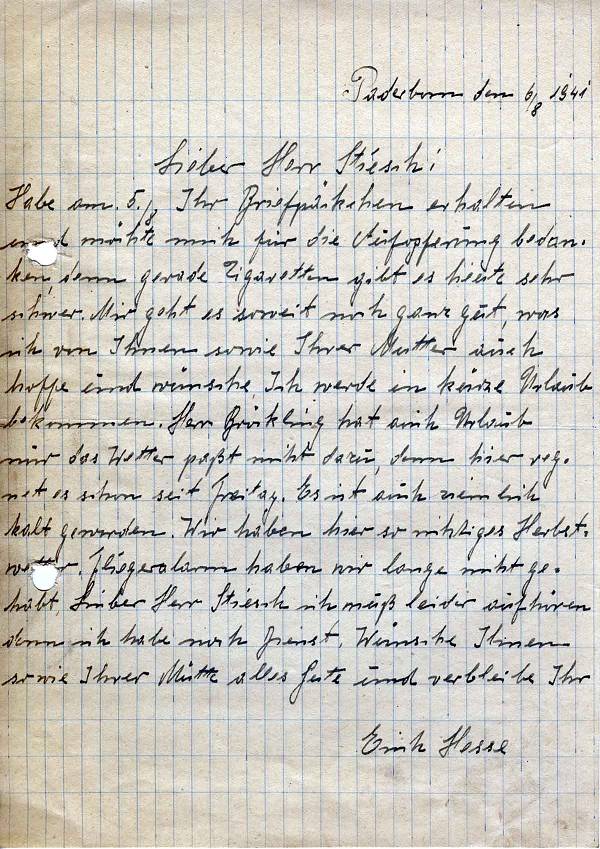 Paderborn den 6/8 1941
Lieber Herr Stiesch!
Habe am 5./8. Ihr Briefpäkchen erhalten
und möchte mich für die Aufopferung bedan-
ken, denn gerade Zigaretten gibt es heute sehr
schwer. Mir geht es soweit noch ganz gut, was
ich von Ihnen sowie Ihrer Mutter auch
hoffe und wünsche. Ich werde in kürze Urlaub
bekommen. Herr Brökling hat auch Urlaub
nur das Wetter paßt nicht dazu, denn hier reg-
net es schon seit Freitag. Es ist auch ziemlich
kalt geworden. Wir haben hier so richtiges Herbst-
wetter. Fliegeralarm haben wir lange nicht ge-
habt. Lieber Herr Stiesch ich muß leider aufhören
denn ich habe noch Dienst. Wünsche Ihnen
sowie Ihrer Mutter alles Gute und verbleibe Ihr
Erich Hesse